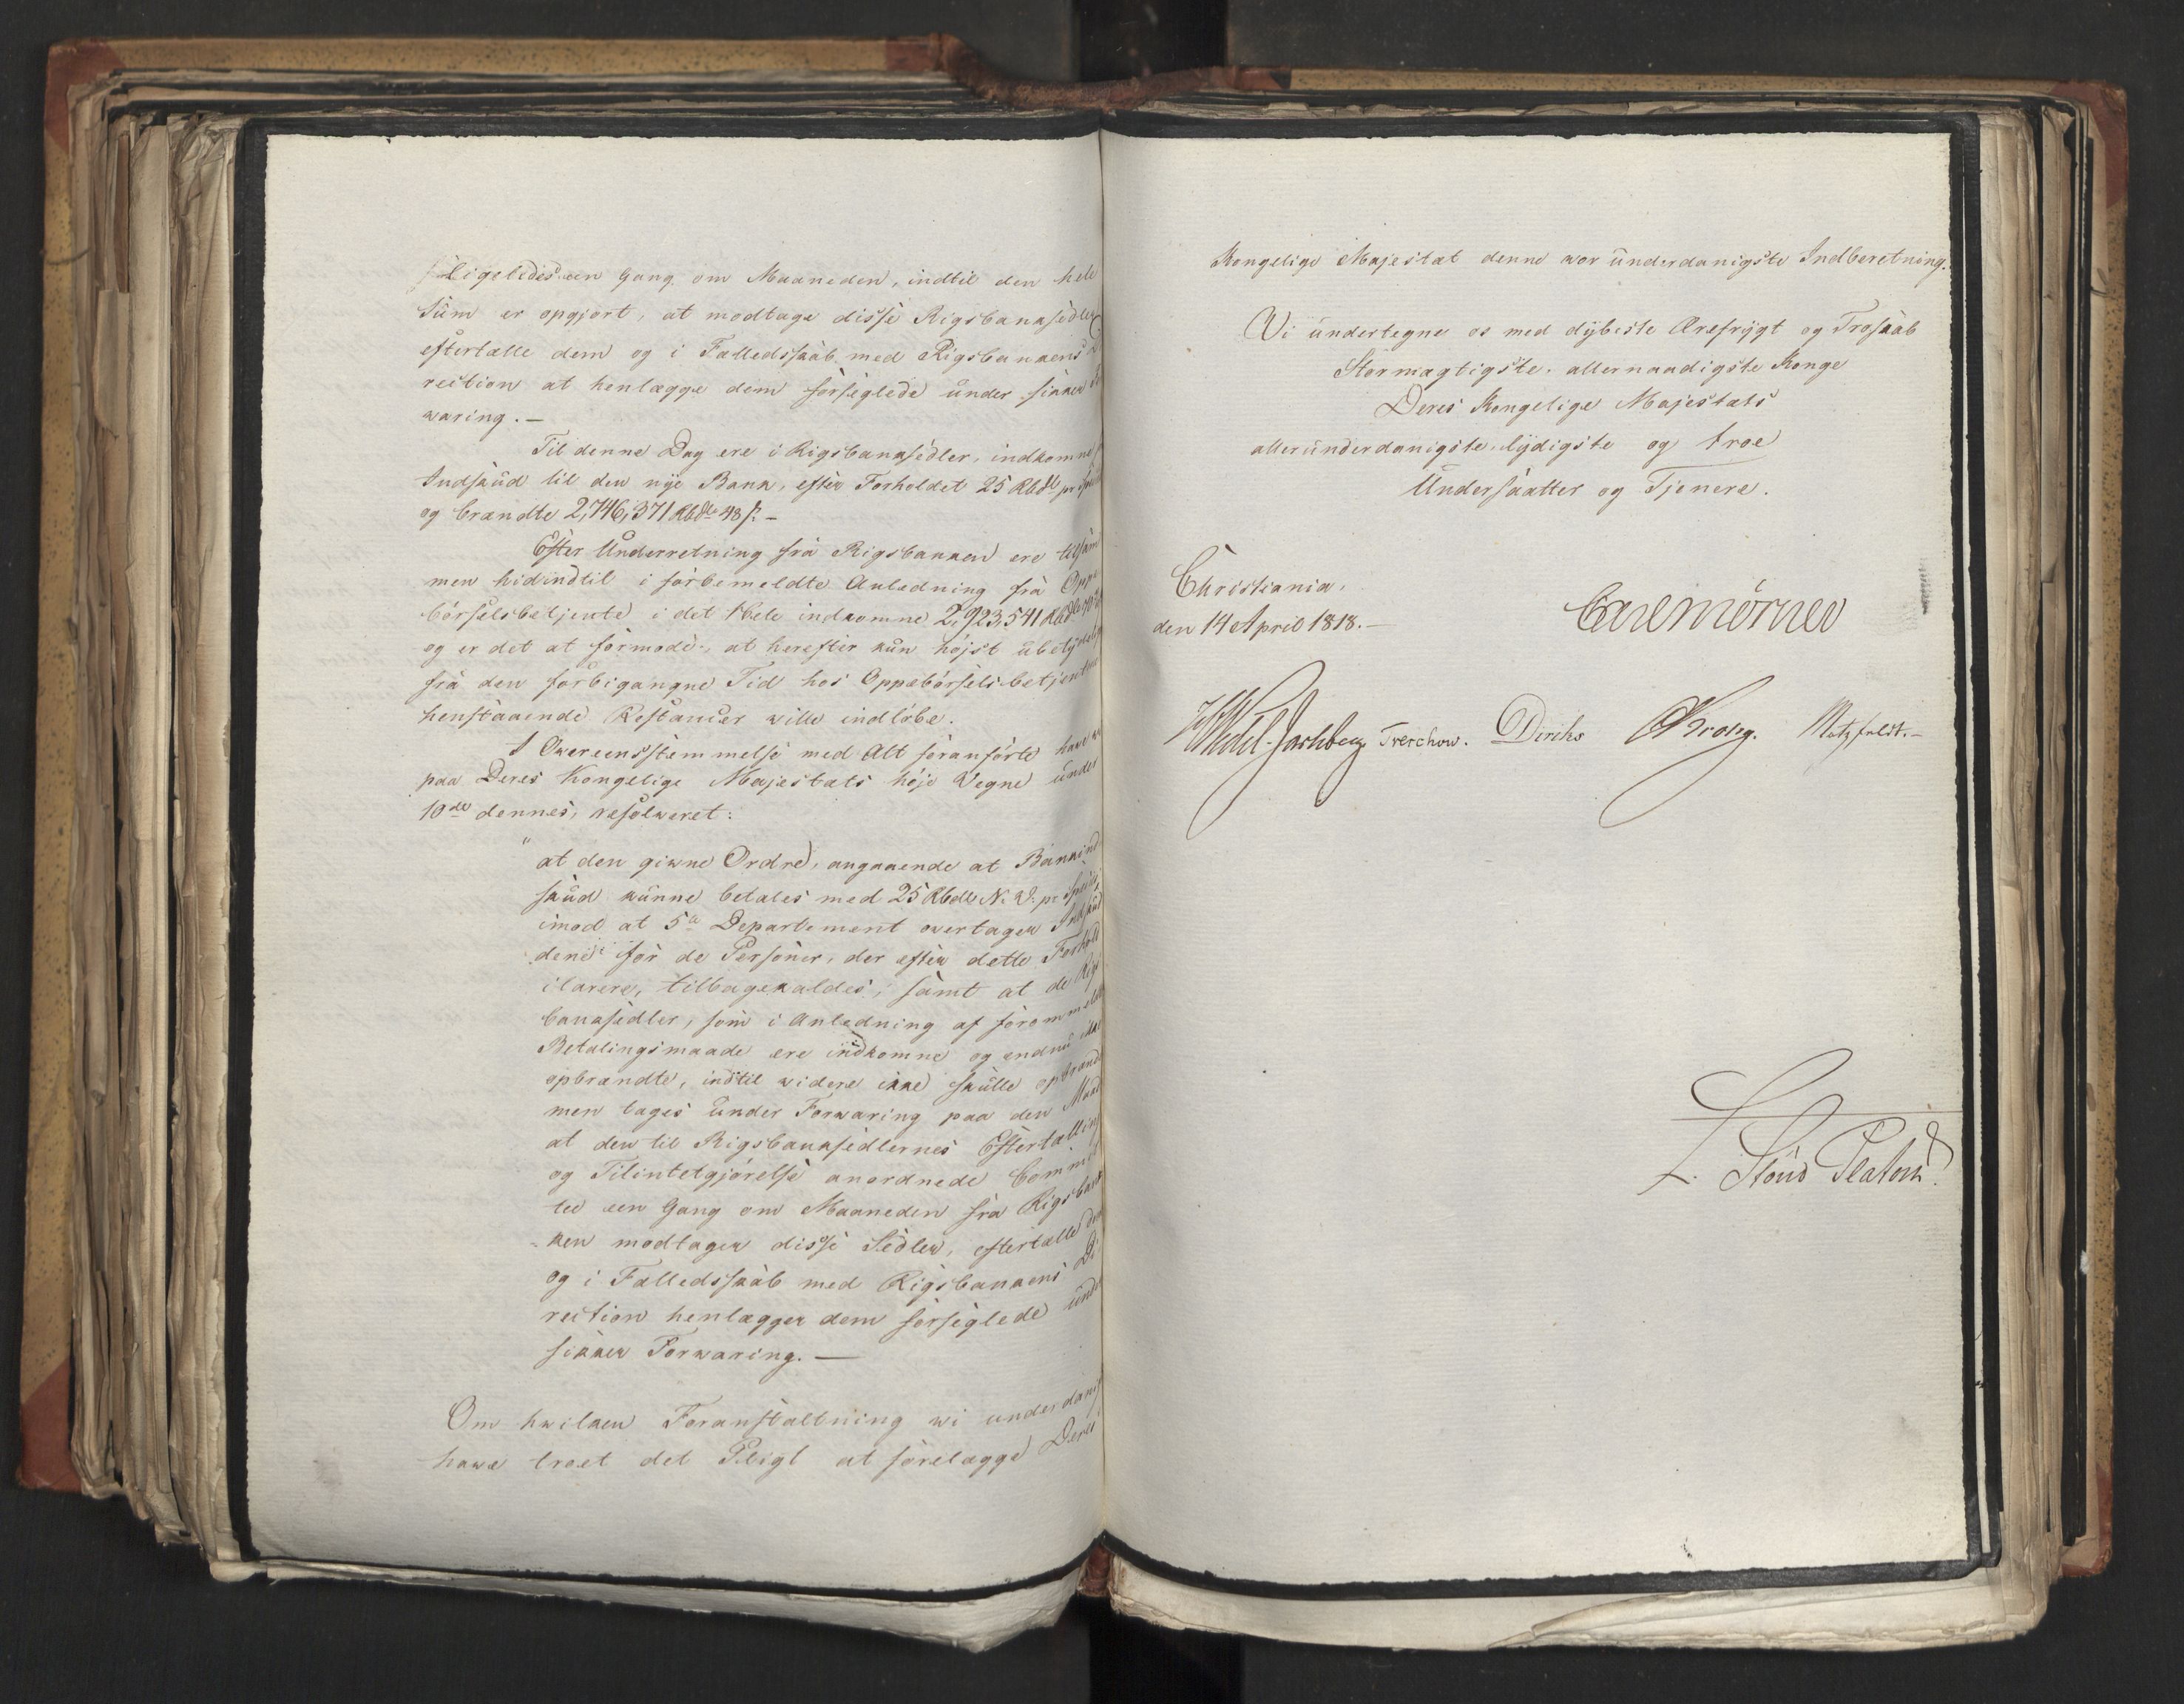 ligeledes een Gang om Maaneden, indtil den hele
Sum er opgjort, at modtage disse Rigsbanksedler,
eftertælle dem og i Fælledsskab med Rigsbankens Di
rection at henlægge dem forseglede under sikker
waring. —
Til denne Dag ere i Rigsbanksedler, indkomne
Indskud til den nye Bank, efter Forholdet 25 Rbdl pr
og brændte 2,746,371 Rbdlr 48 s. —
Efter Underretning fra Rigsbanken ere tilsam
men hidindtil i forbemeldte Anledning fra Oppe
børselsbetjente i det Hele indkomne 2,923,541 Rbdlr
og er det at formode, at herefter kun højst ubetydelig
fra den forbigangne Tid hos Oppebørselsbetjentene
henstaaende Restancer wille indløbe.
I Owereensstemmelse med Alt foranførte have wi
paa Deres Kongelige Majestæts høje Vegne under
10de dennes, resolweret:
"at den giwne Ordre, angaaende at Bankind
skud kunne betales med 25 Rbdlr N. V. pr Specie,
imod at 5te Departement owertager Indskud
dene for de Personer, der efter dette Forhold
clarere, tilbagekaldes; samt at de Rigs
banksedler, som i Anledning af forommeldte
Betalingsmaade ere indkomne og endnu ikke
opbrændte, indtil widere ikke skulle opbrænd
men tages under Forwaring paa den Maad
at den til Rigsbanksedlernes Eftertælling
og Tilintetgjørelse anordnede Commit
tee een Gang om Maaneden fra Rigsban
ken modtager disse Sedler, eftertælle dem
og i Fælledsskab med Rigsbankens Di
rection henlægger dem forseglede under
sikker Forwaring. —
Om hwilken Foranstaltning wi underdanigst
hawe troet det Pligt at forelægge Deres
Kongelige Majestæt denne wor underdanigste Indberetning.
Vi undertegne os med dybeste Ærefrygt og Troskab
Stormægtigste, allernaadigste Konge
Deres Kongelige Majestæts
allerunderdanigste, lydigste og troe
Undersaatter og Tjenere.
Christiania,
den 14 April 1818. —
Carl Mörner
Wedel-Jarlsberg Treschow. Diriks Krohg. Motzfeldt. —
L. Stoud Platou.